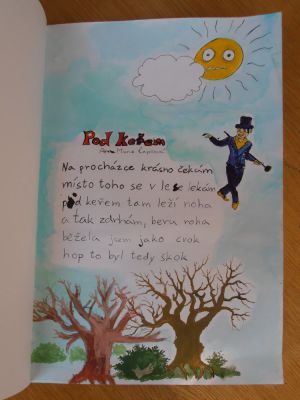 Pod keřem
Anna Marie
Na procházce krásno čekám
místo toho se v lese lekám
pod keřem tam leží noha
a tak zdrhám, beru roha
běžela jsem jako cvok
hop to byl tedy skok